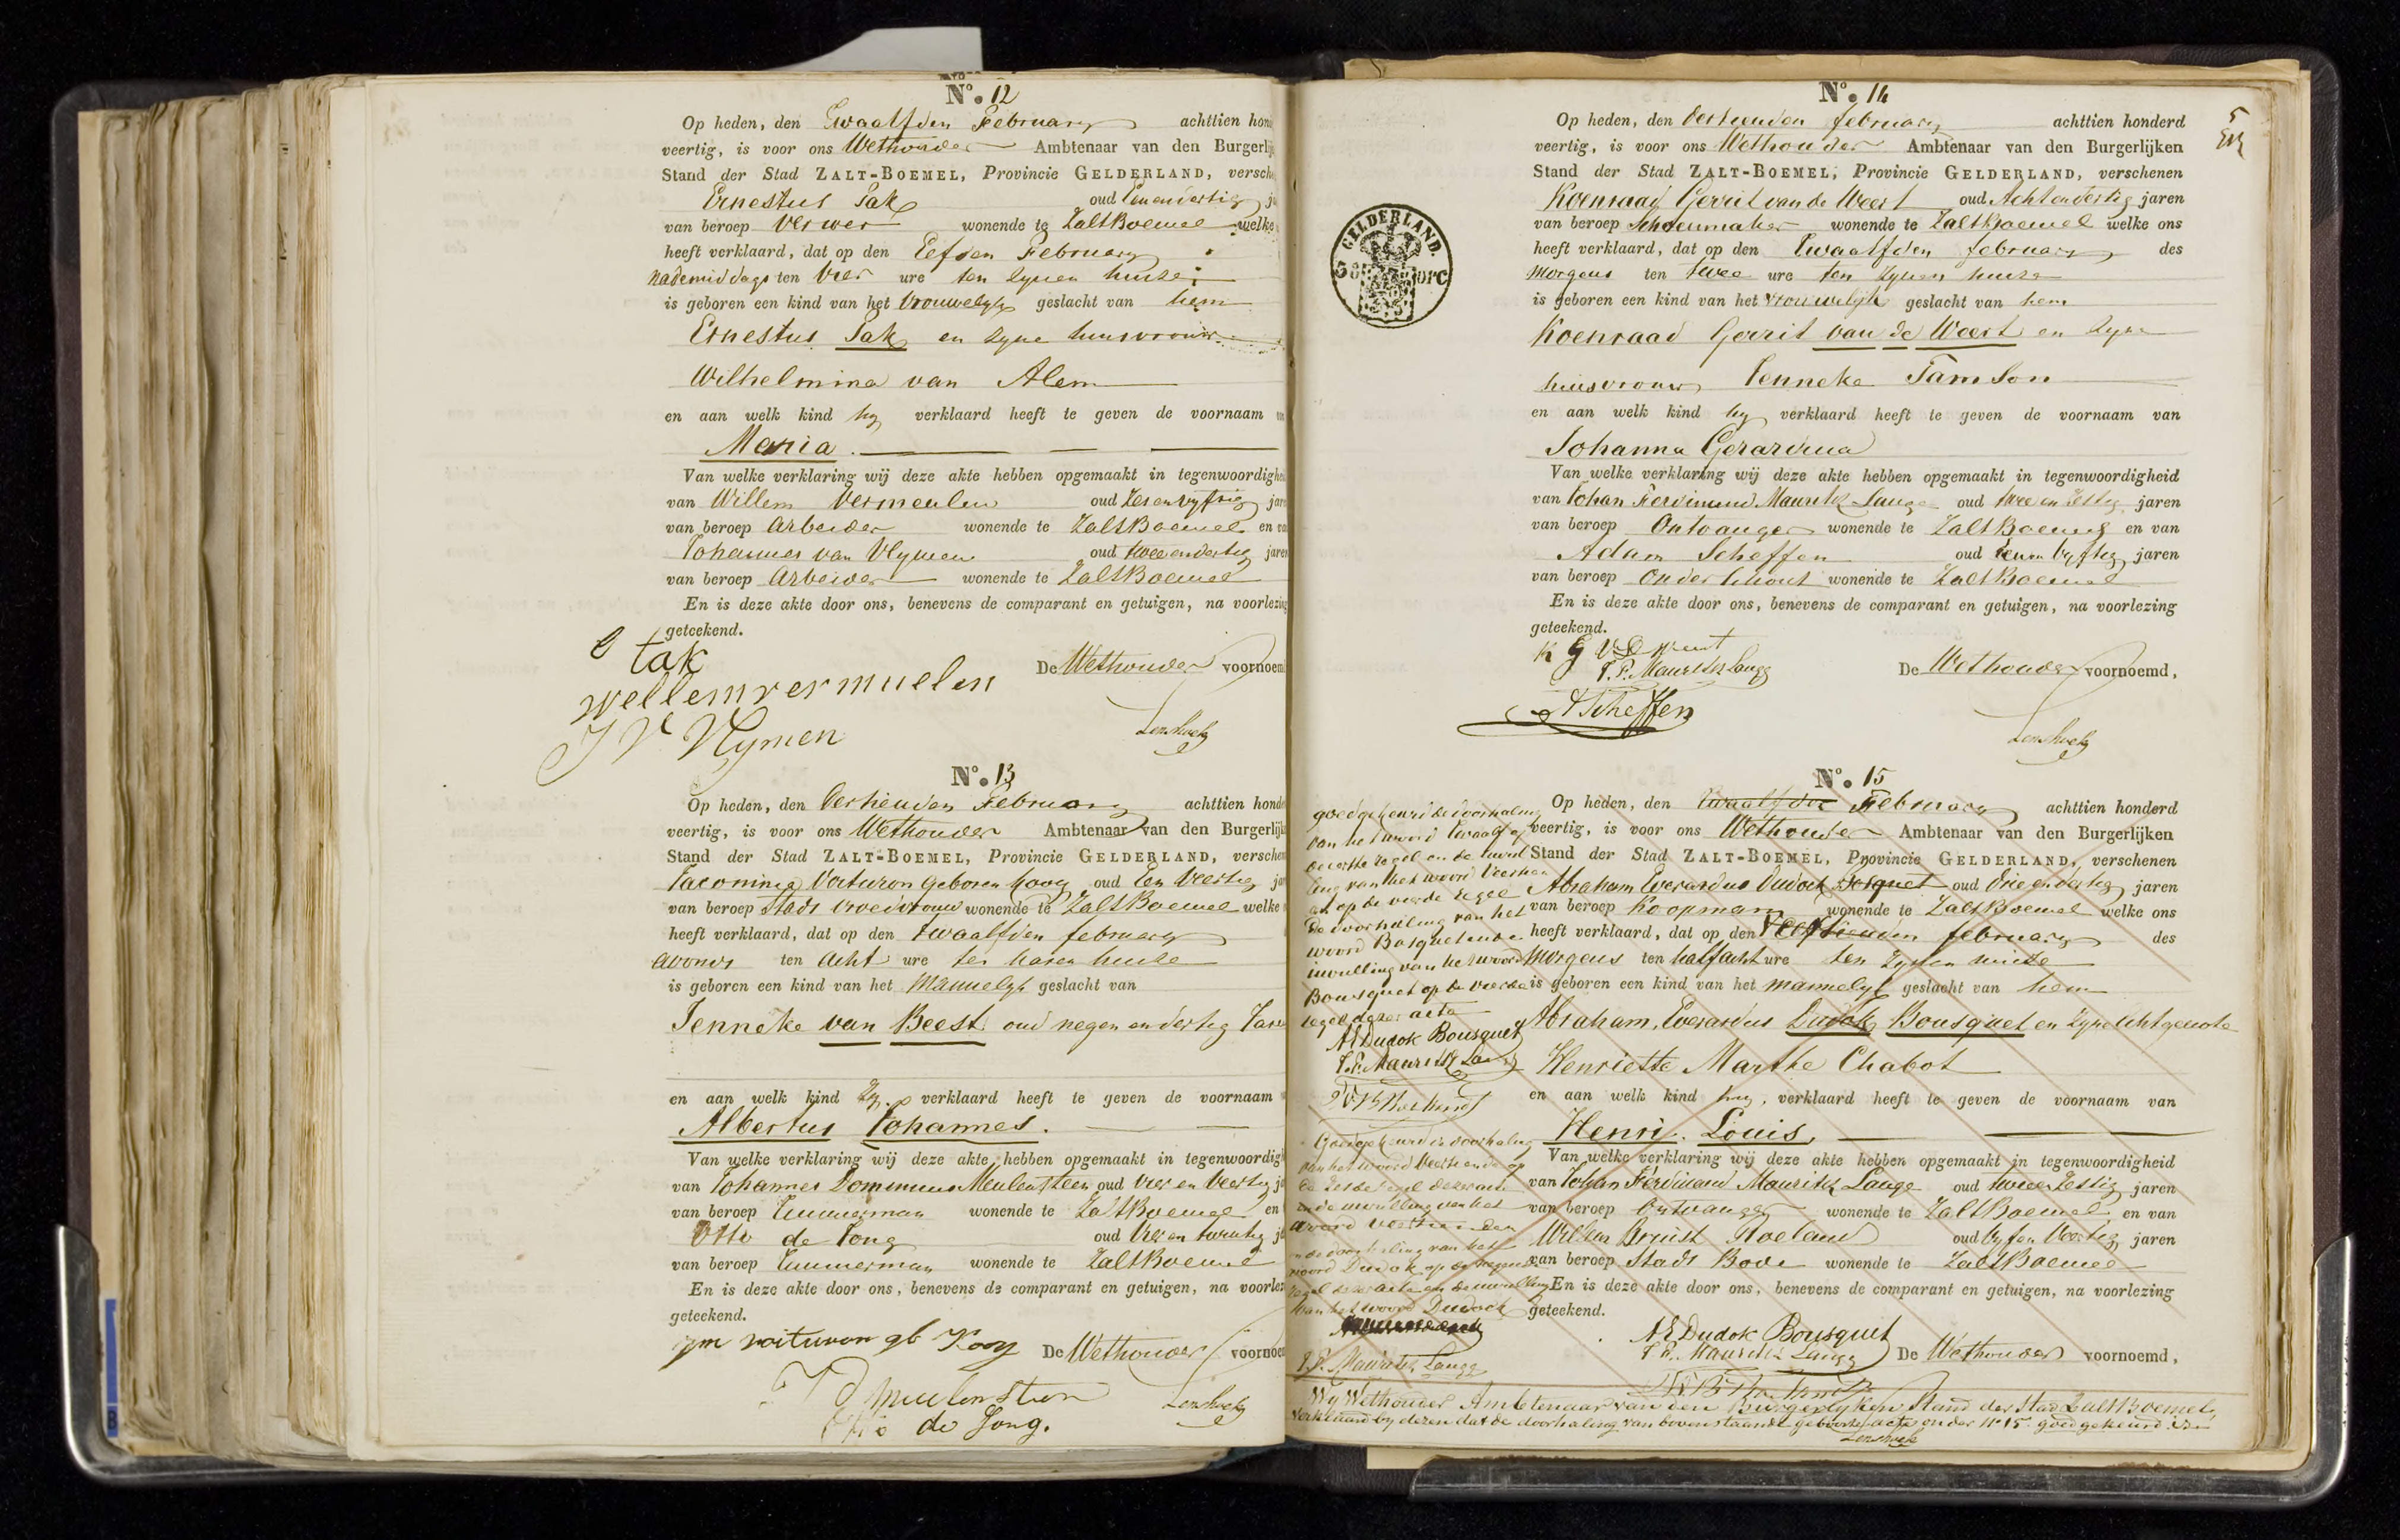 No. 12
Op heden, den Twaalfden February achttien hon
veertig, is voor ons Wethouder Ambtenaar van den Burgerlij
Stand der Stad ZALT-BOEMEL, Provincie GELDERLAND, versche
Ernestus Tak oud Eenendertig j
van beroep Verwer wonende te ZaltBoemel welke
heeft verklaard, dat op den Elfden February
nademiddags ten Vier ure ten zynen huize
is geboren een kind van het Vrouwelyk geslacht van hem
Ernestus Tak en zyne huisvrouw
Wilhelmina van Alem
en aan welk kind hy verklaard heeft te geven de voornaam
Maria.
Van welke verklaring wij deze akte hebben opgemaakt in tegenwoordighe
van Willem Vermeulen oud Zesenvyftig jare
van beroep Arbeider wonende te ZaltBoemel en va
Johannes van Vlymen oud tweeendertig jaren
van beroep Arbeider wonende te ZaltBoemel
En is deze akte door ons, benevens de comparant en getuigen, na voorlezing
geteekend.
E tak
De Wethouder voornoem
wellemvermuelen
J V Vlymen
Lenshoek
No. 13
Op heden, den Dertienden February achttien honde
veertig, is voor ons Wethouder Ambtenaar van den Burgerlijk
Stand der Stad ZALT-BOEMEL, Provincie GELDERLAND, verschen
Jacomina Voituron geboren Kooy oud Een Veertig jar
van beroep Stads Vroedvrouw wonende te ZaltBoemel welke
heeft verklaard, dat op den twaalfden february
avonds ten Acht ure ten haren huize
is geboren een kind van het Mannelyk geslacht van
Jenneke van Beest oud negen en dertig Jare
en aan welk kind Zy verklaard heeft te geven de voornaam
Albertus Johannes.
Van welke verklaring wij deze akte hebben opgemaakt in tegenwoordigh
van Johannes Dominicus Meulensteen oud Vier en Veertig j
van beroep Timmerman wonende te ZaltBoemel en
Otto de Jong oud Vier en twintig ja
van beroep Timmerman wonende te ZaltBoemel
En is deze akte door ons, benevens de comparant en getuigen, na voorlez
geteekend.
ym voituron gb Kooy De Wethouder voornoem
J D Meulensteen Lenshoek
Otto de Jong.
No. 14
5
Op heden, den Dertienden february achttien honderd
veertig, is voor ons Wethouder Ambtenaar van den Burgerlijken
Stand der Stad ZALT-BOEMEL, Provincie GELDERLAND, verschenen
Koenraad Gerrit van de Weert oud Achtendertig jaren
van beroep Schoenmaker wonende te ZaltBoemel welke ons
heeft verklaard, dat op den Twaalfden february des
Morgens ten twee ure ten zynen huize
is geboren een kind van het vrouwelijk geslacht van hem
Koenraad Gerrit van de Weert en zyn
huisvrouw Jenneke Tamson
en aan welk kind hy verklaard heeft te geven de voornaam van
Johanna Gerardina
Van welke verklaring wij deze akte hebben opgemaakt in tegenwoordigheid
van Johan Ferdinand Mauritz Lange oud twee en Zestig jaren
van beroep Ontvanger wonende te ZaltBoemel en van
Adam Scheffen oud een en Vyftig jaren
van beroep Onderschout wonende te ZaltBoemel
En is deze akte door ons, benevens de comparant en getuigen, na voorlezing
geteekend.
K G V D Weert
J. F. Mauritz Lange
De Wethouder voornoemd,
A Scheffen
Lenshoek
GELDERLAND.
No. 15
Op heden, den Twaalfden February achttien honderd
veertig, is voor ons Wethouder Ambtenaar van den Burgerlijken
Stand der Stad ZALT-BOEMEL, Provincie GELDERLAND, verschenen
Abraham Everardus Dudok Bosquet oud Drie en dertig jaren
van beroep Koopman wonende te ZaltBoemel welke ons
heeft verklaard, dat op den Veertienden february des
Morgens ten half acht ure ten zynen huize
is geboren een kind van het mannelyk geslacht van hem
Abraham, Everardus Dudok Bousquet en Zyne Echtgenote
Henriette Marthe Chabot
en aan welk kind hy, verklaard heeft te geven de voornaam van
Henri. Louis.
Van welke verklaring wij deze akte hebben opgemaakt in tegenwoordigheid
van Johan Ferdinand Mauritz Lange oud tweeen Zestig jaren
van beroep Ontvanger wonende te ZaltBoemel en van
Willem Brinist Roeland oud Vyf en Veertig jaren
van beroep Stads Bode wonende te ZaltBoemel
En is deze akte door ons, benevens de comparant en getuigen, na voorlezing
geteekend.
AE Dudok Bousquet
J F. Mauritz Lange De Wethouder voornoemd,
goedgekeurd de doorhaling
van het woord Twaalf op
de eerste regel en de invul
ling van het woord Veertien
op de vierde regel
de doorhaling van het
woord Bosquet en de
invulling van het woord
Bousquet op de vierde
regel dezer acte
AE Dudok Bousquet
J. F. Mauritz Lange
Goedgekeurd de doorhaling
van het woord Veertiende op
de zesde regel dezer acte
en de invulling van het
woord veertienden
en de doorhaling van het
woord Dudok op de negende
regel dezer acte en de invulling
van het woord Dudock
J. F. Mauritz Lange
Wy Wethouder Ambtenaar van den Burgerlyken Stand der Stad ZaltBoemel,
verklaard by dezen dat de doorhaling van bovenstaande geboorte acte onder No 15 goedgekeurd is
Lenshoek